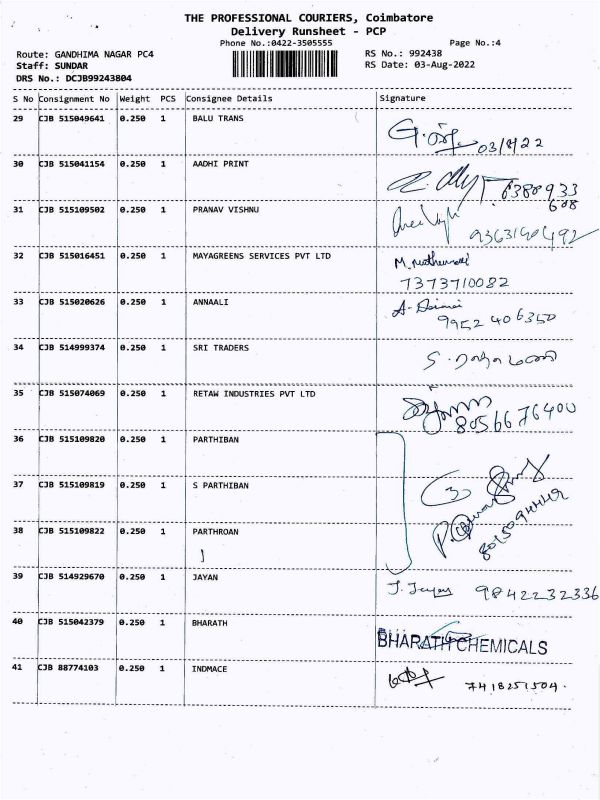 THE PROFESSIONAL COURIERS, Coimbatore
Delivery Runsheet - PCP
Phone No.:0422-3505555 Page No.:4
Route: GANDHIMA NAGAR PC4 RS No.: 992438
Staff: SUNDAR RS Date: 03-Aug-2022
DRS No.: DCJB99243804
S No Consignment No Weight PCS Consignee Details Signature
29 CJB 515049641 0.250 1 BALU TRANS
30 CJB 515041154 0.250 1 AADHI PRINT
6380933
608
31 CJB 515109502 0.250 1 PRANAV VISHNU
32 CJB 515016451 0.250 1 MAYAGREENS SERVICES PVT LTD
7373710082
33 CJB 515020626 0.250 1 ANNAALI
9952406350
34 CJB 514999374 0.250 1 SRI TRADERS
35 CJB 515074069 0.250 1 RETAW INDUSTRIES PVT LTD
8056676400
36 CJB 515109820 0.250 1 PARTHIBAN
37 CJB 515109819 0.250 1 S PARTHIBAN
3
38 CJB 515109822 0.250 1 PARTHROAN
39 CJB 514929670 0.250 1 JAYAN J. Jayan 9842232336
40 CJB 515042379 0.250 1 BHARATH
BHARATH CHEMICALS
41 CJB 88774103 0.250 1 INDMACE 7418251504.